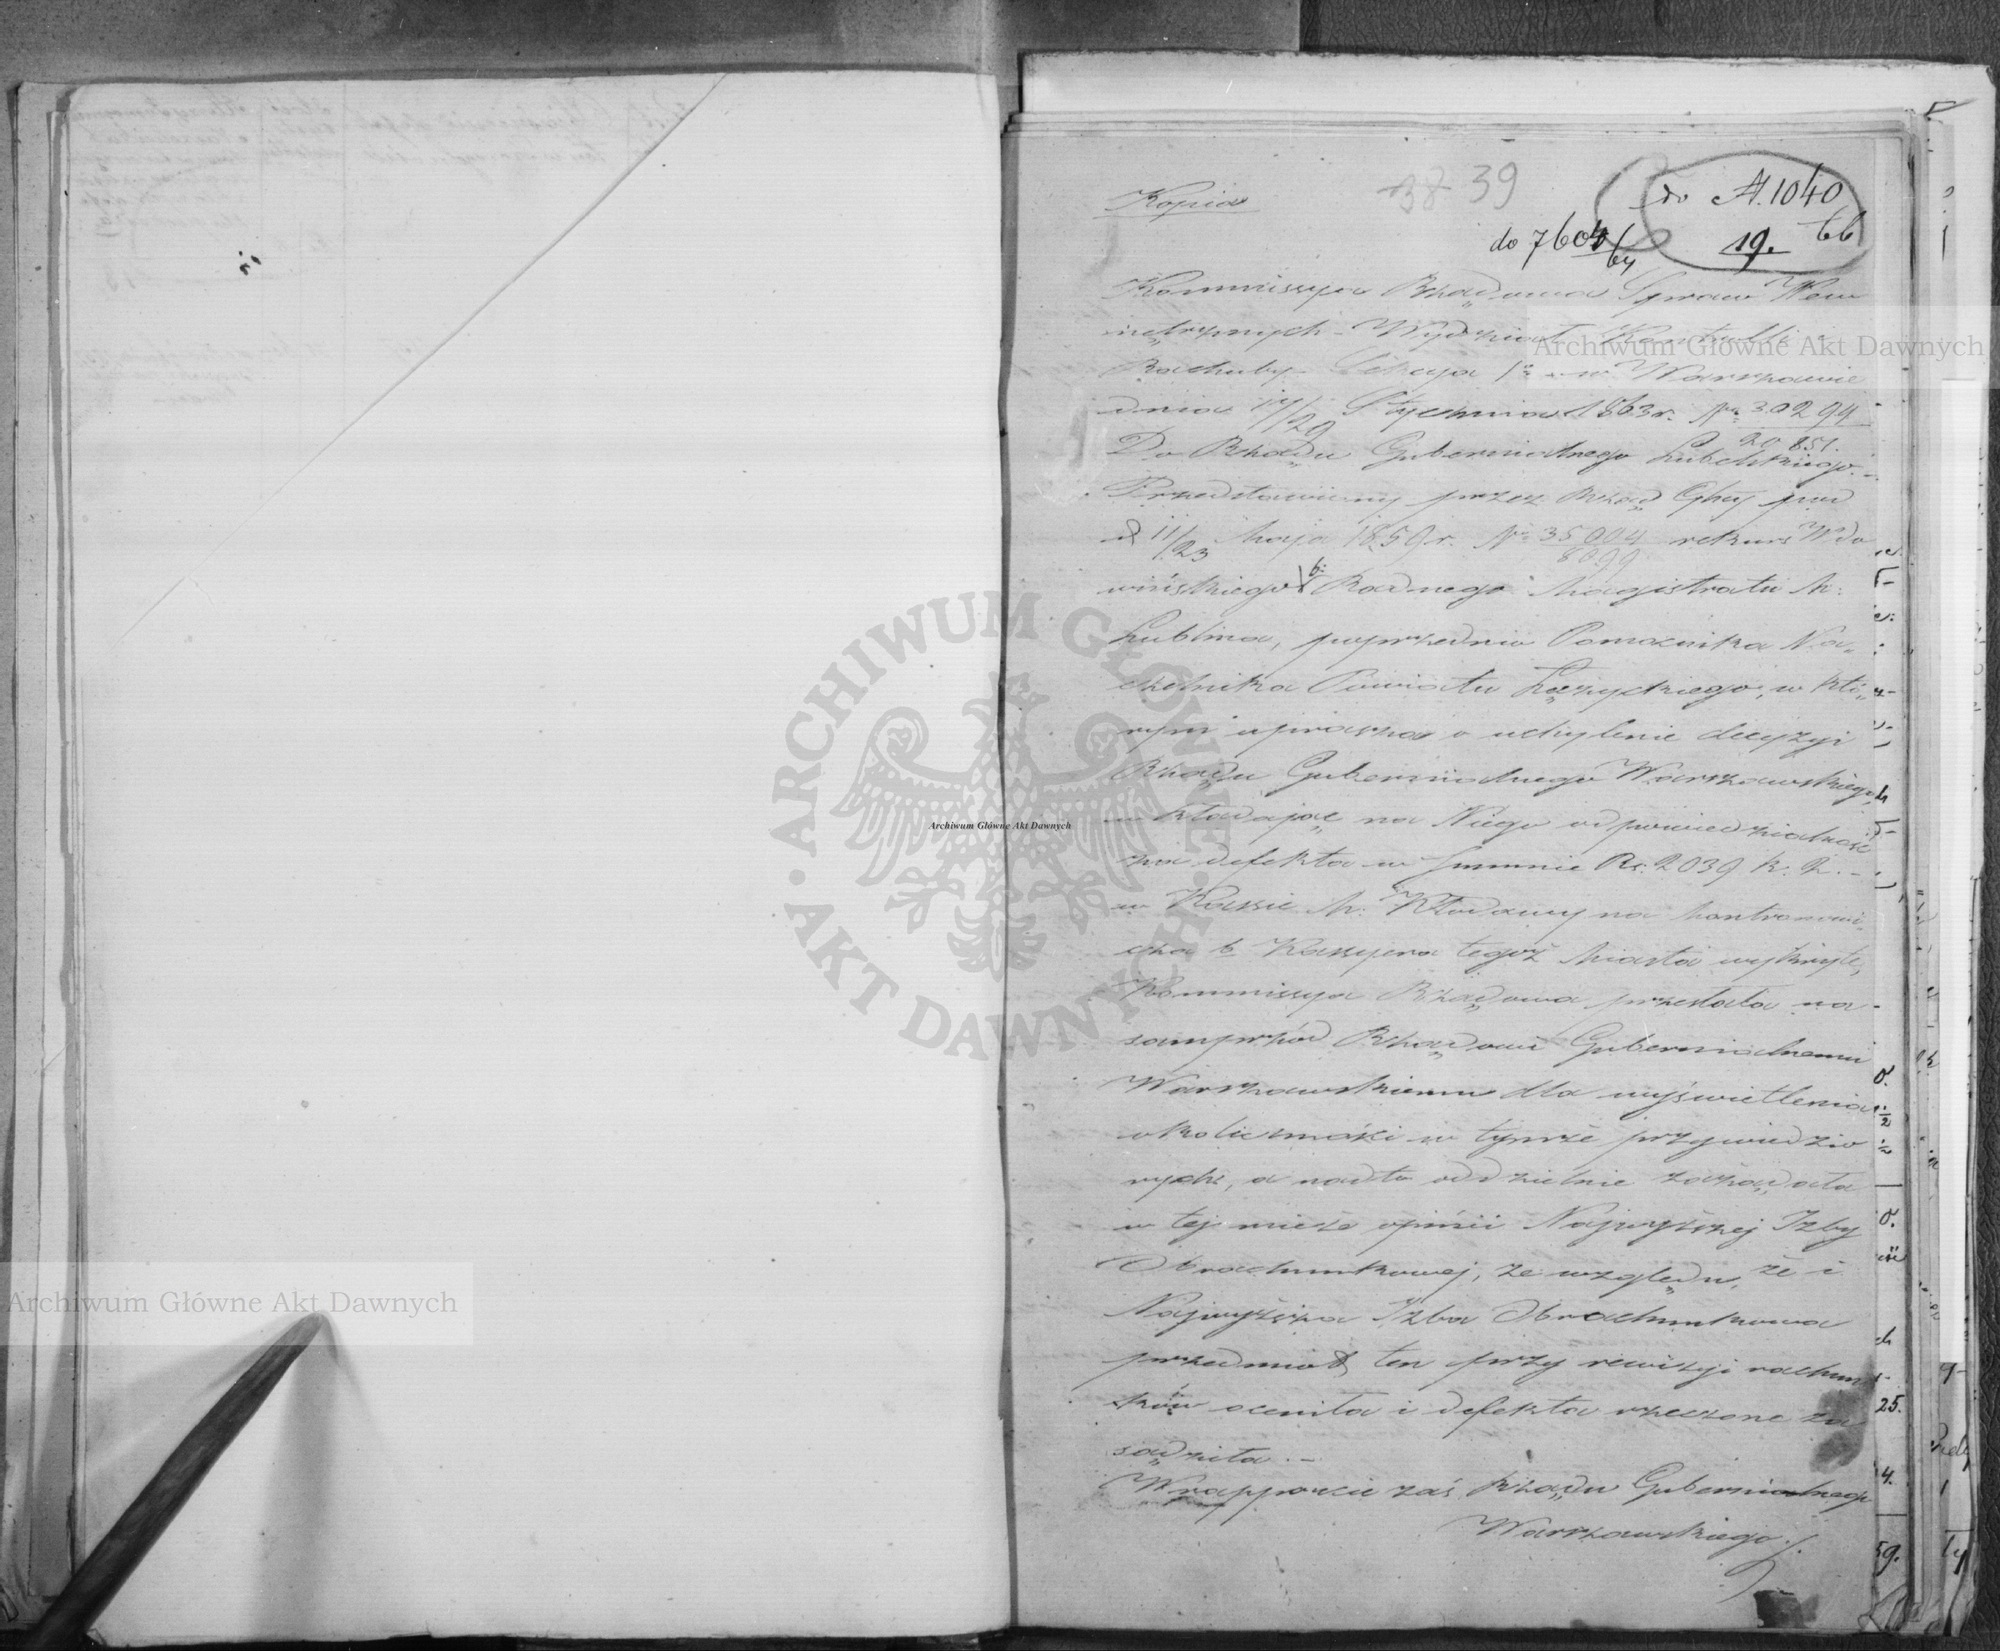 Kopia
38 39
do A. 1040
19. 66
do 7604/64
Kommissya Rządowa Spraw Wew
nętrznych - Wydział Kontrolli i
Rachuby Sekcya 1a w Warszawie
dnia 17/29 Stycznia 1863 r. No 30294
20851.
Do Rządu Gubernialnego Lubelskiego. -
Przedstawiony przez Rząd Gbny pod
d 11/23 Maja 1859 r. No 35004 rekurs Wdo
8099
wińskiego b: Radnego Magistratu M:
Lublina, poprzednio Pomocnika Na„
czelnika Powiatu Łęczyckiego, w któ„
rym uprasza o uchylenie decyzyi
Rządu Gubernialnego Warszawskiego,
wkładając na Niego odpowiedzialność
za defekta w summie Rs: 2039 k. 2. -
w Kassie M: Kłodawy na Mantranowi
cza b Kassyera tegoż Miasta wykryte,
Kommissya Rządowa przesłała na
samprzód Rządowi Gubernialnemu
Warszawskiemu dla wyświetlenia
okoliczności w tymże przywiedzio
nych, a nadto oddzielnie zażądała
w tej mierze opinii Najwyższej Izby
Obrachunkowej, ze względu, że i
Najwyższa Izba Obrachunkowa
przedmiot ten przy rewizyi rachun
ków oceniła i defekta rzeczone za
sądziła. -
W rapporcie zaś Rządu Gubernialnego
Warszawskiego
Archiwum Główne Akt Dawnych
Archiwum Główne Akt Dawnych
Archiwum Główne Akt Dawnych
ARCHIWUM GŁÓWNE · AKT DAWNYCH ·